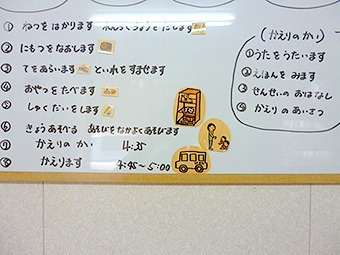 ① ねつを はかります れんらくちょうをだします
② にもつをなおします
③ てをあらいます といれをすませます
④ おやつをたべます
⑤ しゅくだいをします
⑥ きょうあそべる あそびをなかよくあそびます
⑦ かえりの かい 4:35
⑧ かえります 4:45~5:00
(かえりのかい)
①うたをうたいます
②えほんを みます
③せんせいの おはなし
④かえり のあいさつ